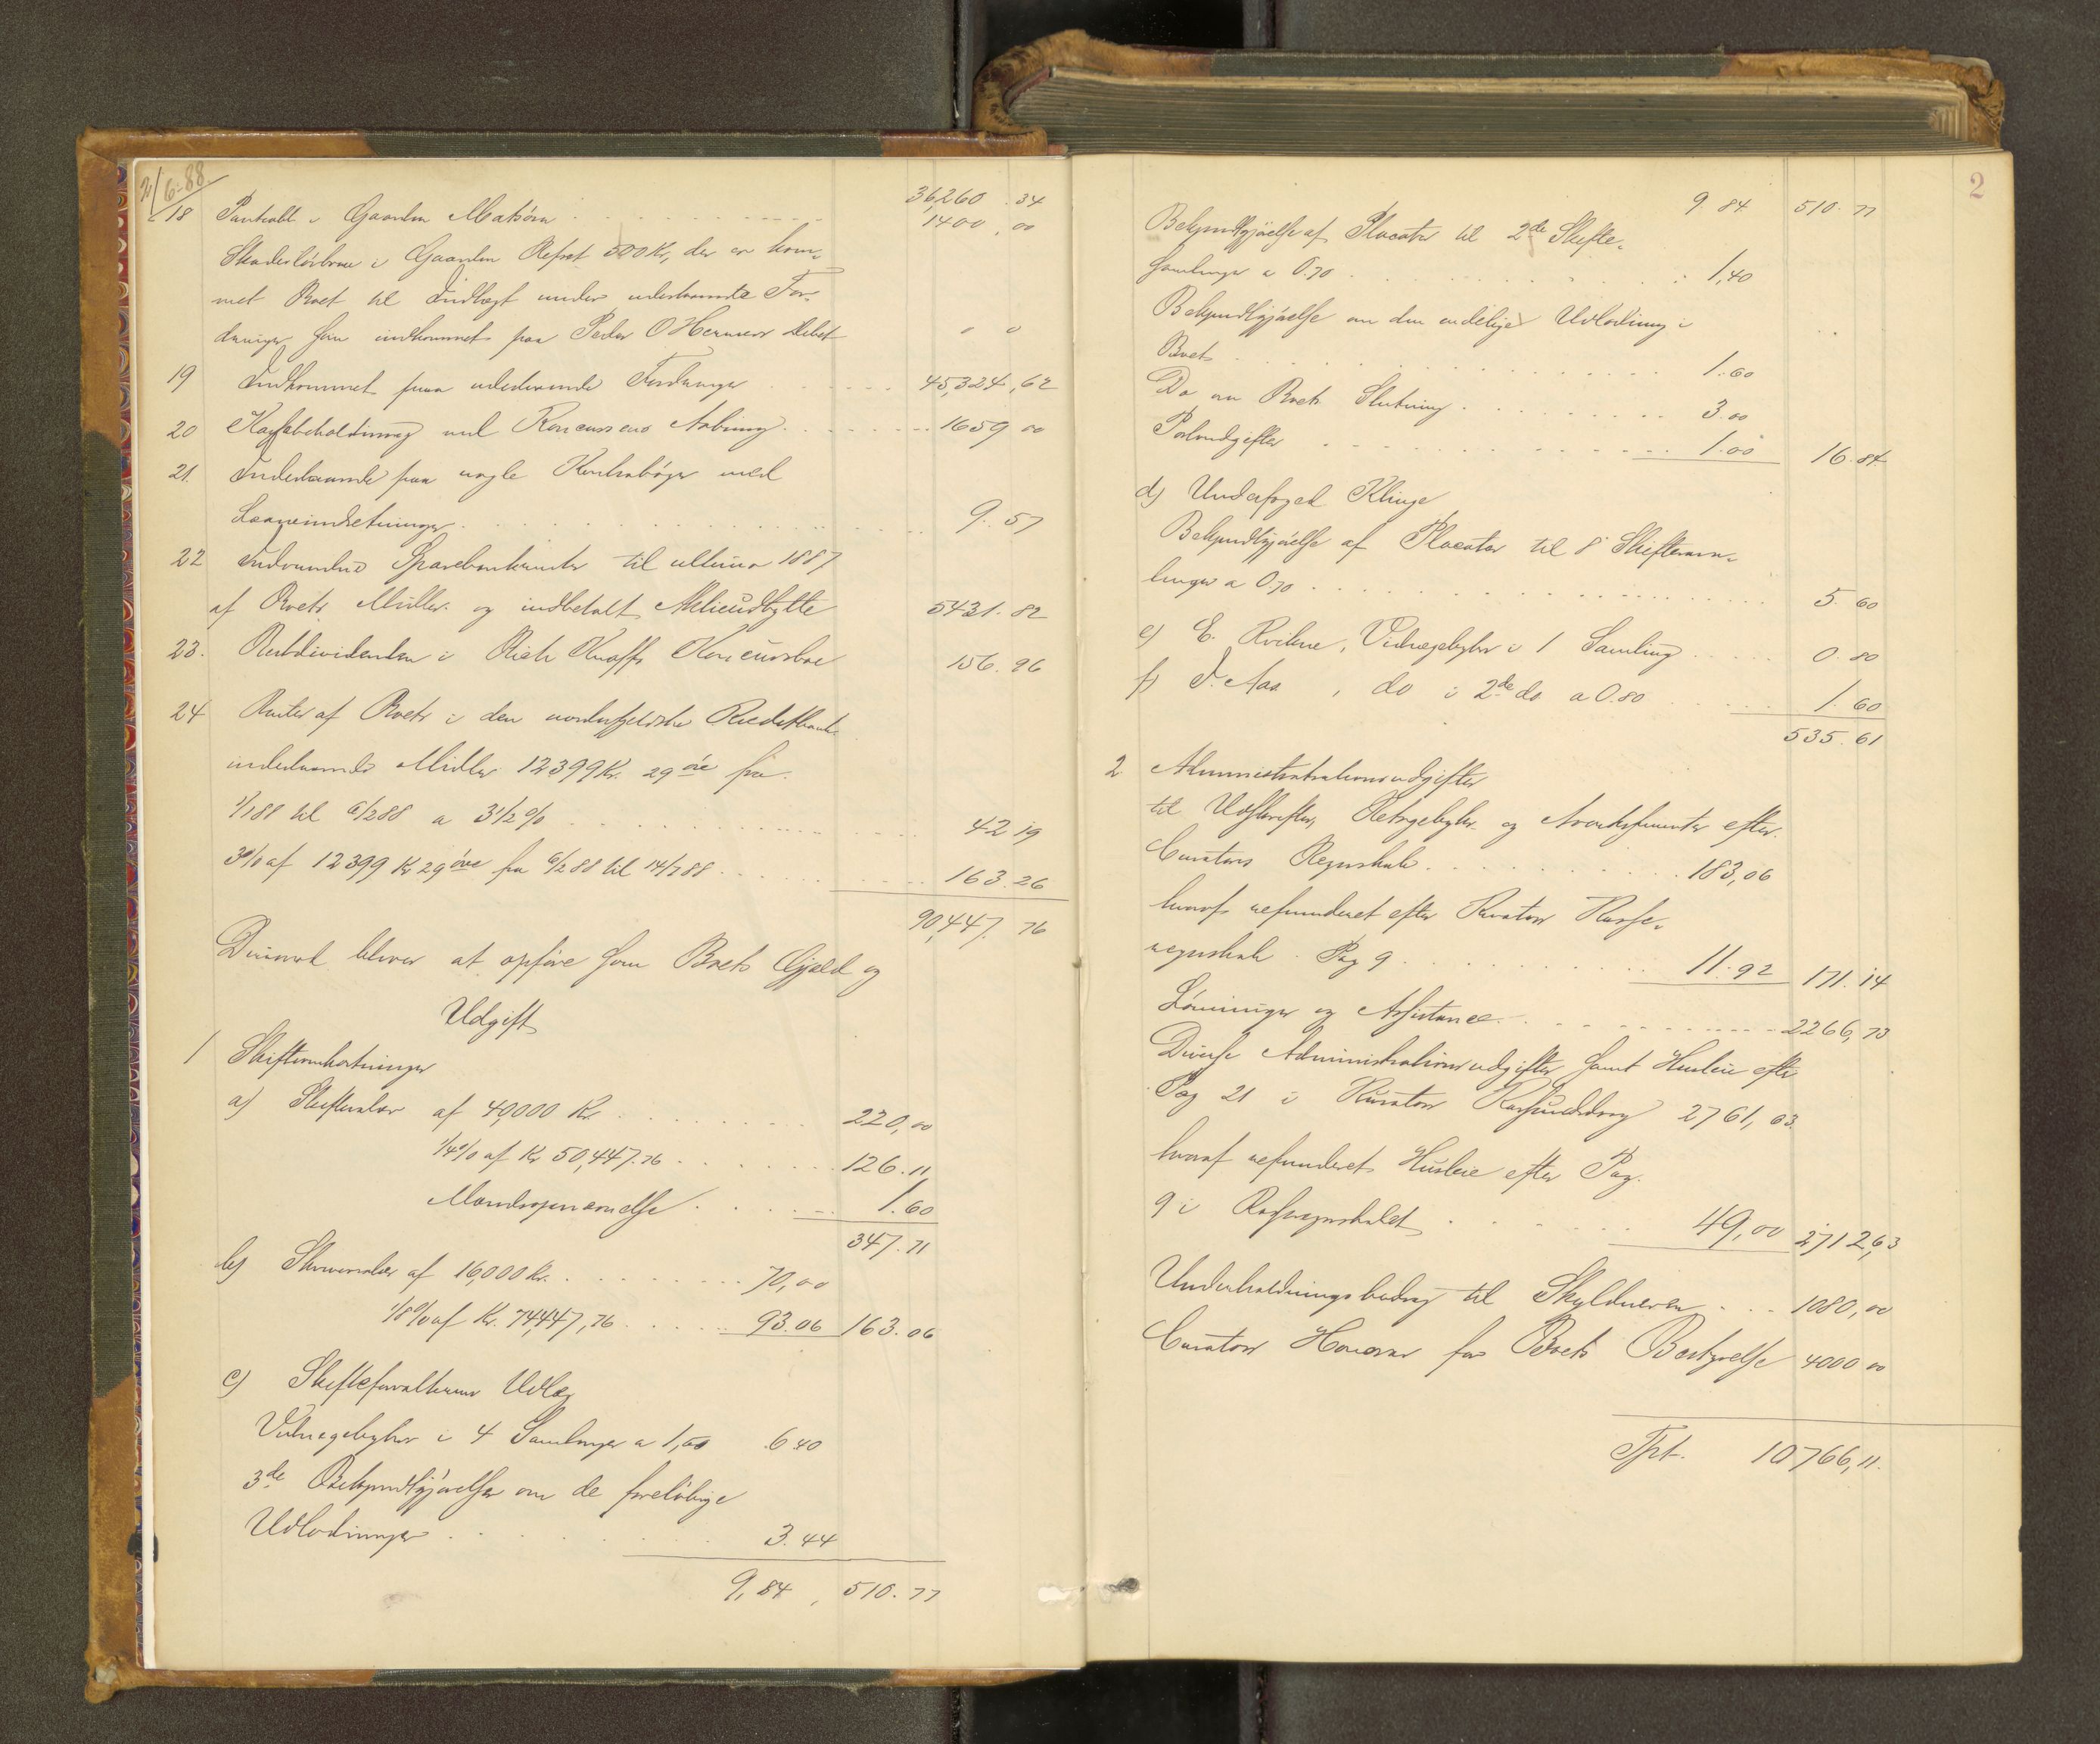 2/6-88.
36,260.34
18 Pantratt i Gaarden Matsöra 1400.00
Skadeslösbrev i Gaarden Refset 500 Kr, der er kom-
met Boet til Indtægt under udestaaende For-
dringer som indkommet paa Peder O Hermess Debet " "
19 Indkommet paa udestaaende Fordringer 45,324,62
20 Kassabeholdning ved Konkursens Aabning 1659 00
21. Indestaaende paa nogle Kontrabøger med
Laaneindretninger 9.57
22 Indvundne Sparebankrenter til ultimo 1887
af Boets Midler og indbetalt Aktieudbytte 5431.82
23. Restdividenden i Knoffs Koncursboe 156.96
24 Renter af Boets i den nordenfjeldske Kreditbank
indestaaende Midler 12399 Kr. 29 öre fra
1/1 88 til 6/2 88 a 3½ % 42 19
3% af 12399 Kr 29 öre fra 6/2 88 til 14/7 88 163.26
90,447.76
Derimod bliver at opföre som Boets Gjeld og
Udgift
1 Skifteomkostninger
a) Skiftesalær af 40,000 Kr. 220,00
1/4% af Kr 50,447.76 126.11
Mandsopnævnelse 1.60
347.71
b) Skriversalær af 16,000 Kr. 70,00
1/8% af Kr. 74,447,76 93.06 163.06
c) Skifteforvalterens Udlæg
Vidnegebyhr i 4 Samlinger a 1,60 6 40
3de Bekjendtgjörelser om de forelöbige
Udlodninger 3.44
9,84, 510.77
2
9.84 510.77
Bekjendtgjörelse af Placater til 2de Skifte-
samlinger a 0.70 1,40
Bekjendtgjörelse om den endelige Udlodning i
Boet 1.60
Do om Boets Slutning 3.00
Portoudgifter 1.00 16.84
d) Underfoged Klinge
Bekjendtgjörelse af Placater til 8 Skiftesam-
linger a 0.70 5.60
e) E. Kvikne, Vidnegebyhr i 1 Samling 0.80
f) J. Aas, do i 2de do a 0.80 1.60
535.61
2 Administrationsudgifter
til Udskrifter, Retsgebyhr og Avertissementer efter
Curators Regnskab 183,06
hvoraf refunderet efter Kurators Kasse-
regnskab Pag 9 11.92 171.14
Lönninger og Assistance 2266,73
Diverse Administrationsudgifter samt Husleie efter
Pag 21 i Kurators Kasseuddrag 2761,63
hvoraf refunderet Husleie efter Pag.
9 i Kasseregnskabet 49,00 2712,63
Underholdningsbidrag til Skyldneren 1080,00
Curators Honorar for Boets Bestyrelse 4000 00
Tprt. 10766,11.